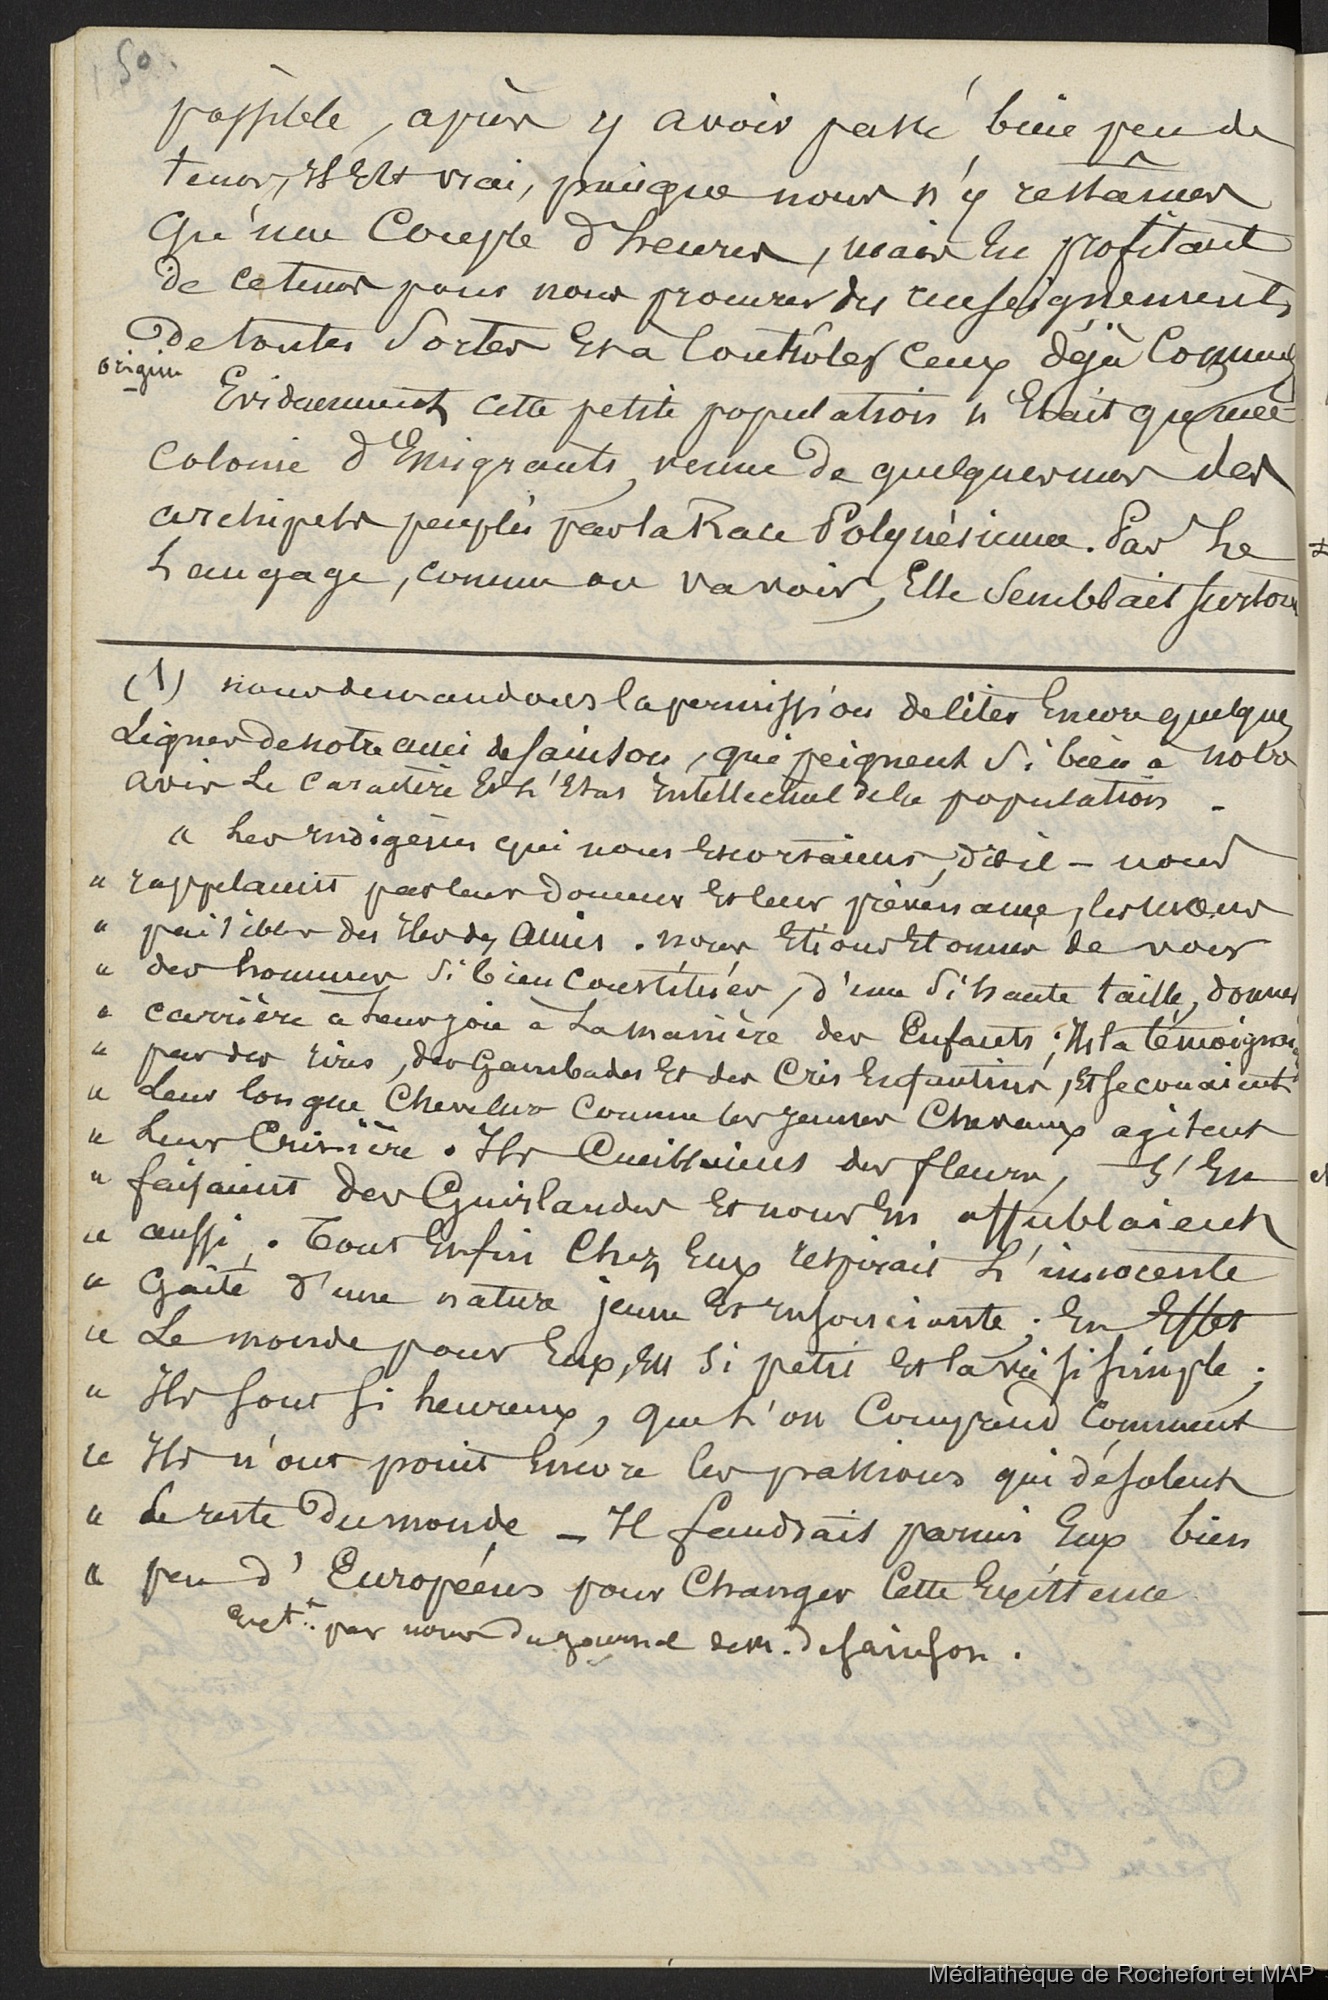 50.
possible, après y avoir passé bien peu de
tems, il est vrai, puisque nous n'y restâmes
qu'une couple d'heures, mais en profitant
de ce tems pour nous procurer des renseignements
de toutes sortes et a contrôler ceux déjà connus
origine
Evidemment cette petite population n'était qu'une
colonie d'Emigrants, venue de quelques uns des
archipels peuplés par la Race Polynésienne. Par Le
Langage, comme on va voir, Elle semblait surtou
(1) nous demandons la permission de citer Encore quelques
Lignes de notre ami de Sainson, qui peignent si bien a notre
avis Le caractère Et L'Etat Intellectuel de la population -
" Les Indigènes qui nous Escortaient, dit il - nous
" rappelaient par leur douceur Et leur prévenance, les mœurs
" paisibles des Iles des Amis. nous Etions Etonnés de voir
" des hommes si bien constitués, d'une si haute taille, donner
" carrière a Leur joie à La manière des Enfants; Ils la témoignai
" par des ris, des Gambades Et des Cris Enfantins, Et secouaient
" Leur longue Chevelure comme les jeunes Chevaux agitent
" Leur Crinière. Ils Cueillaient des fleurs, s'En
" faisaient des Guirlandes Et nous En affublaient
" aussi. Tout Enfin Chez Eux respirait L'innocente
" Gaîté d'une nature jeune Et Insouciante; En Effet
" Le monde pour Eux, Est si petit Et la vie si simple;
" Ils sont si heureux, que L'on Comprend Comment
" Ils n'ont point Encore les passions qui désolent
" Le reste Du monde - Il faudrait parmi Eux bien
" peu d'Européens pour Changer Cette Existence
par nous du journal de M. de Sainson.
Médiathèque de Rochefort et MAP